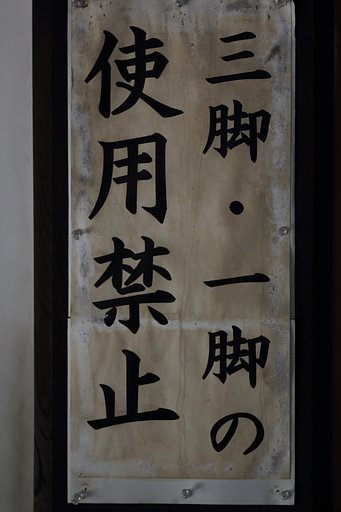 三脚・一脚の
使用禁止